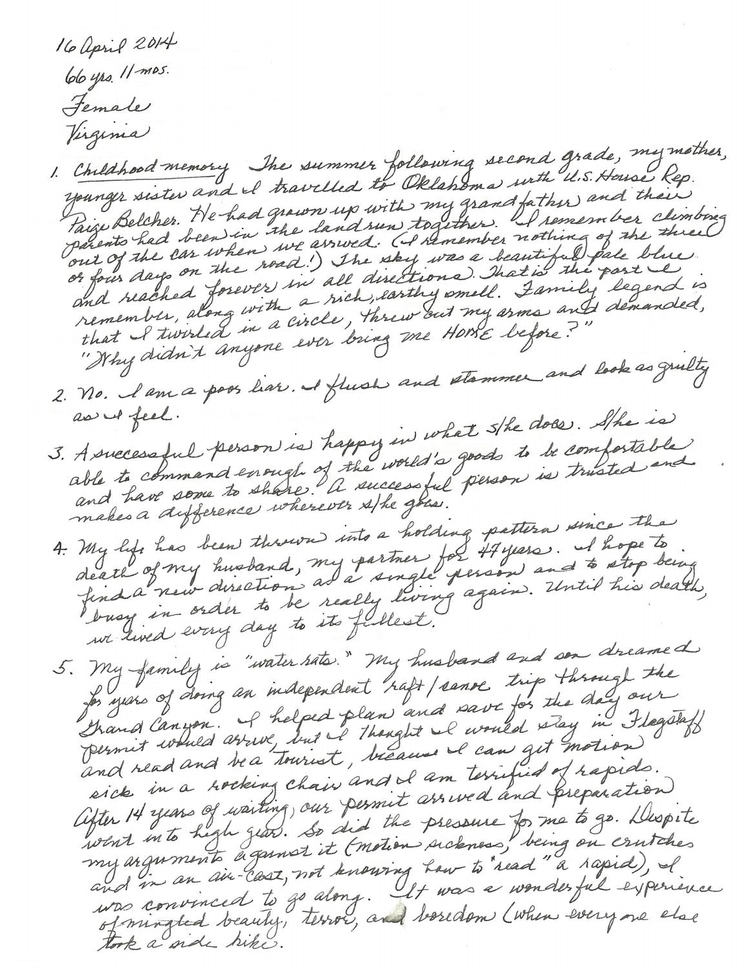 16 April 2014
66 yrs. 11 mos.
Female
Virginia
1. Childhood memory The summer following second grade, my mother,
younger sister and I travelled to Oklahoma with U.S. House Rep.
Paige Belcher. He had grown up with my grandfather and their
parents had been in the land run together. I remember climbing
out of the car when we arrived. (I remember nothing of the three
or four days on the road!) The sky was a beautiful pale blue
and reached forever in all directions. That is the part I
remember, along with a rich, earthy smell. Family legend is
that I twirled in a circle, threw out my arms and demanded,
"Why didn't anyone ever bring me HOME before?"
2. No. I am a poor liar. I flush and stammer and look as guilty
as I feel.
3. A successful person is happy in what s/he does. S/he is
able to command enough of the world's goods to be comfortable
and have some to share. A successful person is trusted and
makes a difference wherever s/he goes.
4. My life has been thrown into a holding pattern since the
death of my husband, my partner for 47 years. I hope to
find a new direction as a single person and to stop being
busy in order to be really living again. Until his death,
we lived every day to its fullest.
5. My family is "water rats." My husband and son dreamed
for years of doing an independent raft/canoe trip through the
Grand Canyon. I helped plan and save for the day our
permit would arrive, but I thought I would stay in Flagstaff
and read and be a tourist, because I can get motion
sick in a rocking chair and I am terrified of rapids.
After 14 years of waiting, our permit arrived and preparation
went into high gear. So did the pressure for me to go. Despite
my arguments against it (motion sickness, being on crutches
and in an air-cast, not knowing how to "read" a rapid), I
was convinced to go along. It was a wonderful experience
of mingled beauty, terror, and boredom (when everyone else
took a side hike.